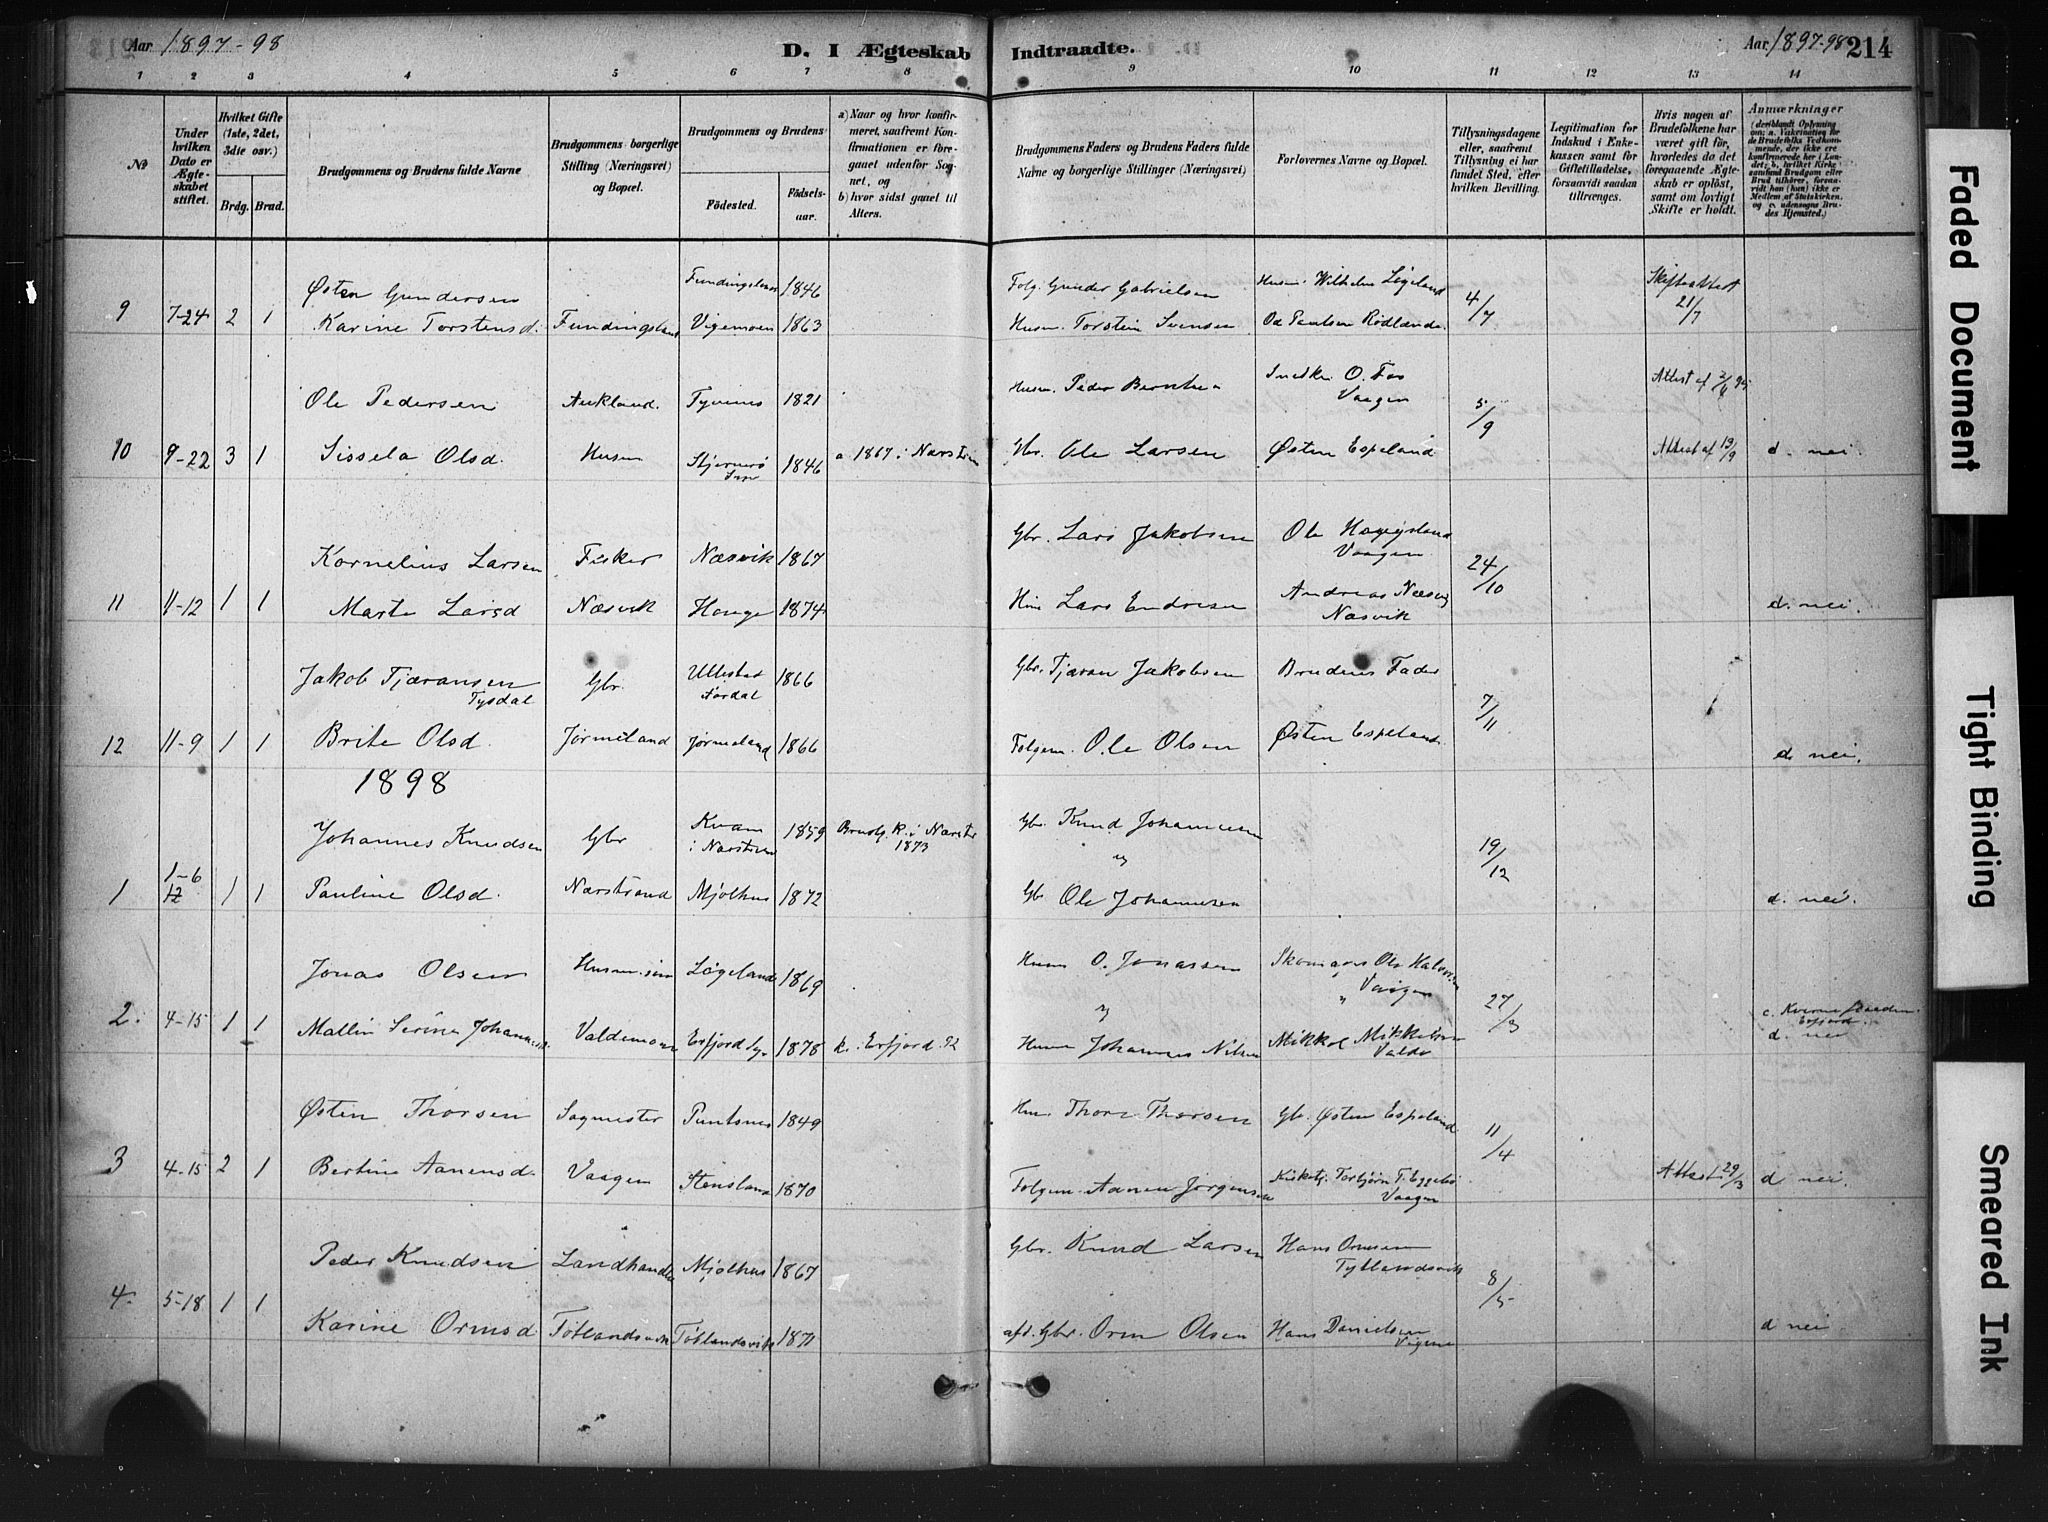 Aar 1897-98
D. I Ægteskab Indtraadte.
Aar 1897-98 214
1 2 3 4 5 6 7 8 9 10 11 12 13 14
No
Under hvilken Dato er Ægteskabet stiftet.
Hvilket Gifte (1ste, 2det, 3die osv.)
Brdg. Brud.
Brudgommens og Brudens fulde Navne
Brudgommens borgerlige Stilling (Næringsvei) og Bopæl.
Brudgommens og Brudens
Fødested. Fødselsaar.
a) Naar og hvor konfirmeret, saafremt Konfirmationen er foregaaet udenfor Sognet, og
b) hvor sidst gaaet til Alters.
Brudgommens Faders og Brudens Faders fulde Navne og borgerlige Stillinger (Næringsvei)
Forlovernes Navne og Bopæl.
Tillysningsdagene eller, saafremt Tillysning ei har fundet Sted, efter hvilken Bevilling.
Legitimation for Indskud i Enkekassen samt for Giftetilladelse, forsaavidt saadan tiltrænges.
Hvis nogen af Brudefolkene har været gift før, hvorledes da det foregaaende Ægteskab er opløst, samt om lovligt Skifte er holdt.
Anmærkninger
Østen Gundersen 1846 Folg. Gunder Gabrielsen Husm. Wilhelm Løgeland 4/7 Skifteattest 21/7
9 7-24 2 1 Karine Torstensd. Fundingsland Vigemoen 1863 Husm. Torstein Svensen Od Paulsen Rødland
Ole Pedersen Aukland. 1821 Husm. Peder O. Fos Vaagen 5/9
10 9-22 3 1 Sissela Olsd. Husm Stjernerø 1846 a 1867 i Narstrand Gbr. Ole Larsen Østen Espeland Attest af 19/9 d. nei.
Kornelius Larsen Fisker Næsvik 1867 Gbr. Lars Jakobsen Ole Vaagen 24/10
11 11-12 1 1 Marte Larsd Næsvik Hauge 1874 Lars Endresen Andreas Næsvig Næsvik d. nei.
Jakob Tjæransen Tysdal Gbr. Ullestad Aardal 1866 Gbr. Tjæran Jakobsen Brudens Fader 7/11
12 11-9 1 1 Brite Olsd. Jørmeland Jørmeland 1866 Folgem. Ole Olsen Østen Espeland d. nei.
1898
Johannes Knudsen Gbr Kvam i Narstrand 1859 Brudg. k. i Narstr 1873 Gbr. Knud Johannesen 19/12
1 1-6 12 1 1 Pauline Olsd. Narstrand Mjølhus 1872 Gb Ole Johannesen d. nei.
Jonas Olsen Løgeland 1869 Husm O. Jonassen Skomager Ole Vaagen 27/3
2. 4-15 1 1 Mallin Serine Valdemoen Erfjord 1878 k. Erfjord 92 Husm Johannes Nilsen Mikkel Mikkelsen c. Erfjord. d. nei
Østen Thorsen Sagmester Puntsnes 1849 Thore Thorsen Gb. Østen Espeland 11/4
3 4-15 2 1 Bertine Aanensd. Vaagen Stensland 1870 Folgem. Aanen Jørgensen Torbjørn T. Eggebø Vaagen Attest 29/3 d nei.
Peder Knudsen Landhandler Mjølhus 1867 Gbr. Knud Larsen Hans Ormsen Tytlandsvik 8/5
4. 5-18 1 1 Karine Ormsd Tøtlandsvik Tøtlandsvik 1871 afd. Gbr. Orm Olsen Hans Danielsen d nei.
Faded Document
Tight Binding
Smeared Ink